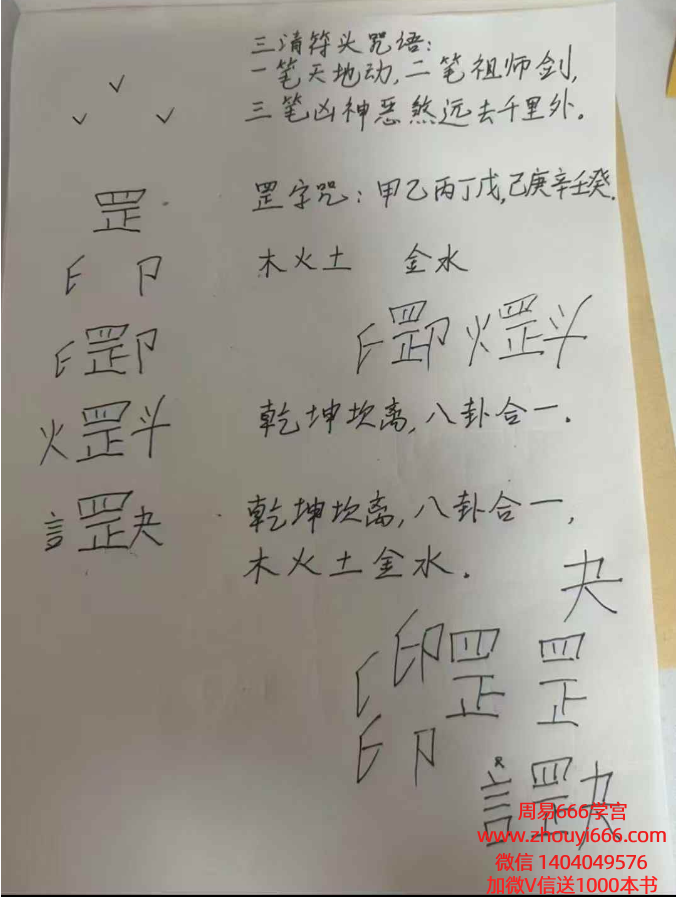 三清符头咒语:
一笔天地动,二笔祖师剑,
三笔凶神恶煞远去千里外。
罡 罡字咒:甲乙丙丁戊,己庚辛壬癸.
𠂎 卩 木火土 金水
𠂎罡卩 𠂎罡卩 火罡斗
火罡斗 乾坤坎离,八卦合一.
言罡夬 乾坤坎离,八卦合一,
木火土金水.
夬
印罡 罡
𠂎 卩
言罡夬
周易666学宫
www.zhouyi666.com
微信 1404049576
加微V信送1000本书